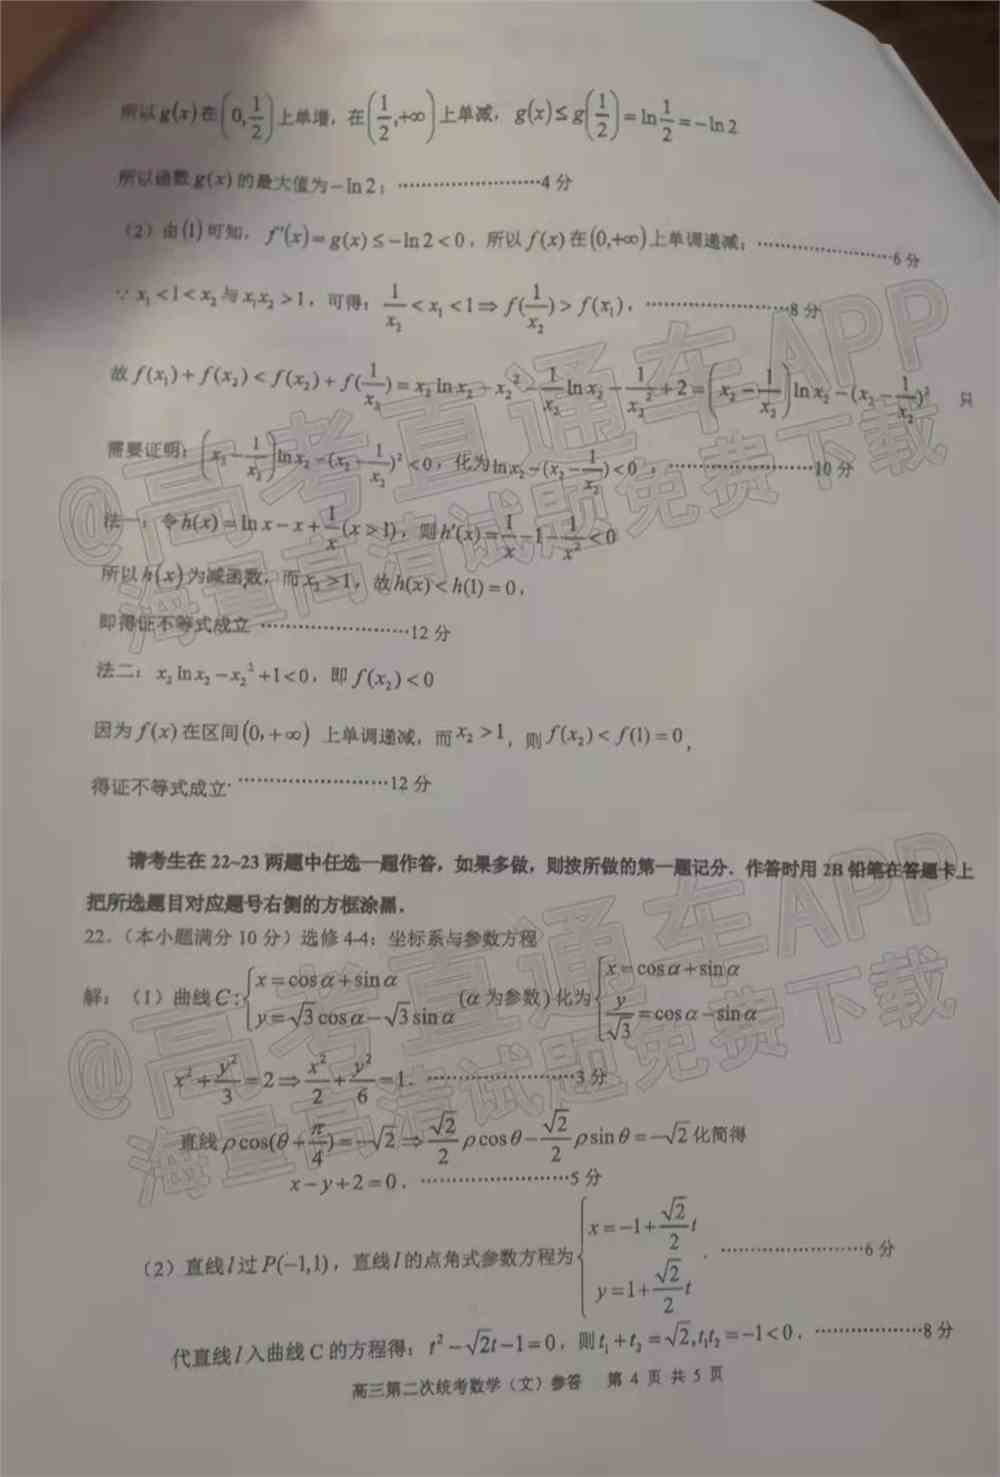 所以g(x)在(0,1/2)上单增，在(1/2,+∞)上单减，g(x)≤g(1/2)=ln1/2=-ln2
所以函数g(x)的最大值为-ln2；……………………4分
（2）由(1)可知，f′(x)=g(x)≤-ln2<0，所以f(x)在(0,+∞)上单调递减；……………………6分
∵x₁<1<x₂与x₁x₂>1，可得：1/x₂<x₁<1⇒f(1/x₂)>f(x₁)，……………………8分
故f(x₁)+f(x₂)<f(x₂)+f(1/x₂)=x₂lnx₂-x₂²-1/x₂lnx₂-1/x₂²+2=(x₂-1/x₂)lnx₂-(x₂-1/x₂)² 只
需要证明：(x₂-1/x₂)lnx₂-(x₂-1/x₂)²<0，化为lnx₂-(x₂-1/x₂)<0，……………………10分
法一：令h(x)=lnx-x+1/x(x>1)，则h′(x)=1/x-1-1/x²<0
所以h(x)为减函数，而x₂>1，故h(x)<h(1)=0，
即得证不等式成立……………………12分
法二：x₂lnx₂-x₂²+1<0，即f(x₂)<0
因为f(x)在区间(0,+∞)上单调递减，而x₂>1，则f(x₂)<f(1)=0，
得证不等式成立……………………12分
请考生在22~23两题中任选一题作答，如果多做，则按所做的第一题记分．作答时用2B铅笔在答题卡上
把所选题目对应题号右侧的方框涂黑．
22．（本小题满分10分）选修4-4：坐标系与参数方程
解：（1）曲线C:{x=cosα+sinα y=√3cosα-√3sinα (α为参数)化为{x=cosα+sinα y/√3=cosα-sinα
x²+y²/3=2⇒x²/2+y²/6=1．……………………3分
直线ρcos(θ+π/4)=-√2⇒√2/2ρcosθ-√2/2ρsinθ=-√2化简得
x-y+2=0．……………………5分
（2）直线l过P(-1,1)，直线l的点角式参数方程为{x=-1+√2/2t y=1+√2/2t．……………………6分
代直线l入曲线C的方程得：t²-√2t-1=0，则t₁+t₂=√2,t₁t₂=-1<0．………………8分
高三第二次统考数学（文）参答 第4页共5页
@高考直通车APP
海量高清试题免费下载
@高考直通车APP
海量高清试题免费下载